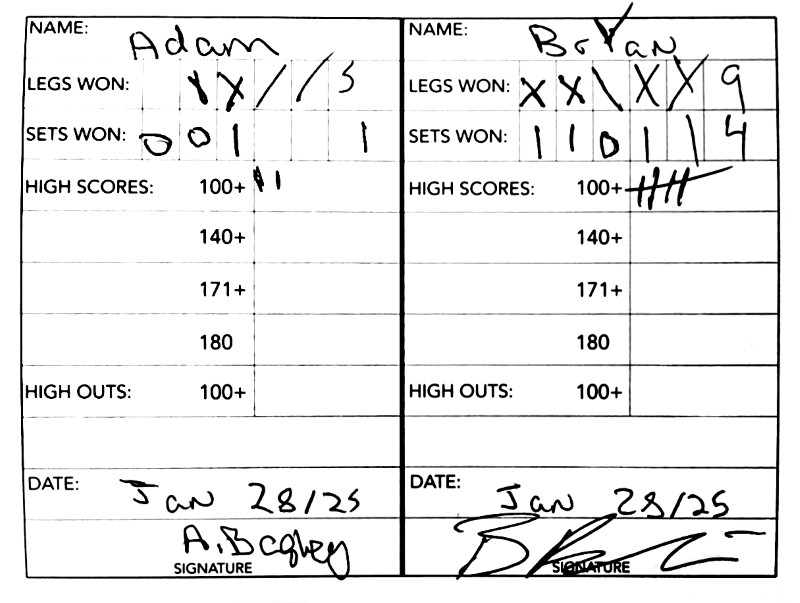 NAME: Adam
LEGS WON: X X / / 5
SETS WON: 0 0 1 1
HIGH SCORES: 100+ II
140+
171+
180
HIGH OUTS: 100+
DATE: Jan 28/25
A. Bagley
SIGNATURE
NAME: Bryan
LEGS WON: X X \ X X 9
SETS WON: 1 1 0 1 1 4
HIGH SCORES: 100+ 卌
140+
171+
180
HIGH OUTS: 100+
DATE: Jan 28/25
SIGNATURE